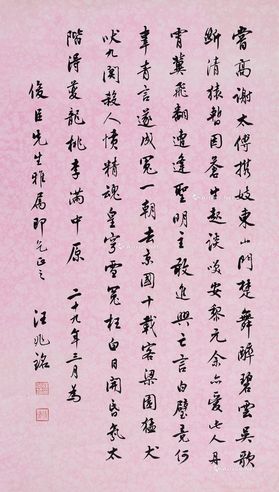 嘗高謝太傅携妓東山門楚舞醉碧雲吳歌
斷清猿暫因蒼生起談咲安黎元余亦愛此人丹
霄冀飛翻遭逢聖明主敢進興亡言白璧竟何
辜青言遂成冤一朝去京國十載客梁園猛犬
吠九關殺人憤精魂皇穹雪冤枉白日開昏氛太
階得夔龍桃李滿中原 二十九年三月為
俊臣先生雅屬即乞正之 汪兆銘